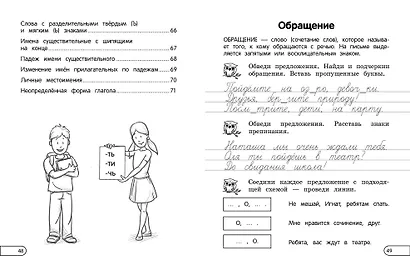 Слова с разделительным твёрдым (ъ)
и мягким (ь) знаками 66
Имена существительные с шипящими
на конце 67
Падеж имени существительного 68
Изменение имён прилагательных по падежам 69
Личные местоимения 70
Неопределённая форма глагола 71
-О?
-ТЬ
-ТИ
-ЧЬ
48
Обращение
ОБРАЩЕНИЕ — слово (сочетание слов), которое называ-
ет того, к кому обращаются с речью. На письме выде-
ляется запятыми или восклицательным знаком.
Обведи предложения. Найди и подчеркни
обращения. Вставь пропущенные буквы.
Пойдемте на оз_ро, девоч_ки.
Друзья, бер_гите природу!
Посм_трите, дети, на карту.
Обведи предложения. Расставь знаки
препинания.
Наташа мы очень ждали тебя.
Оля ты пойдёшь в театр?
До свидания школа!
Соедини каждое предложение с подходя-
щей схемой — проведи линии.
... , О, ... . Не мешай, Игнат, ребятам спать.
О, ... . Мне нравится сочинение, друг.
... , О. Ребята, вас ждут в театре.
49